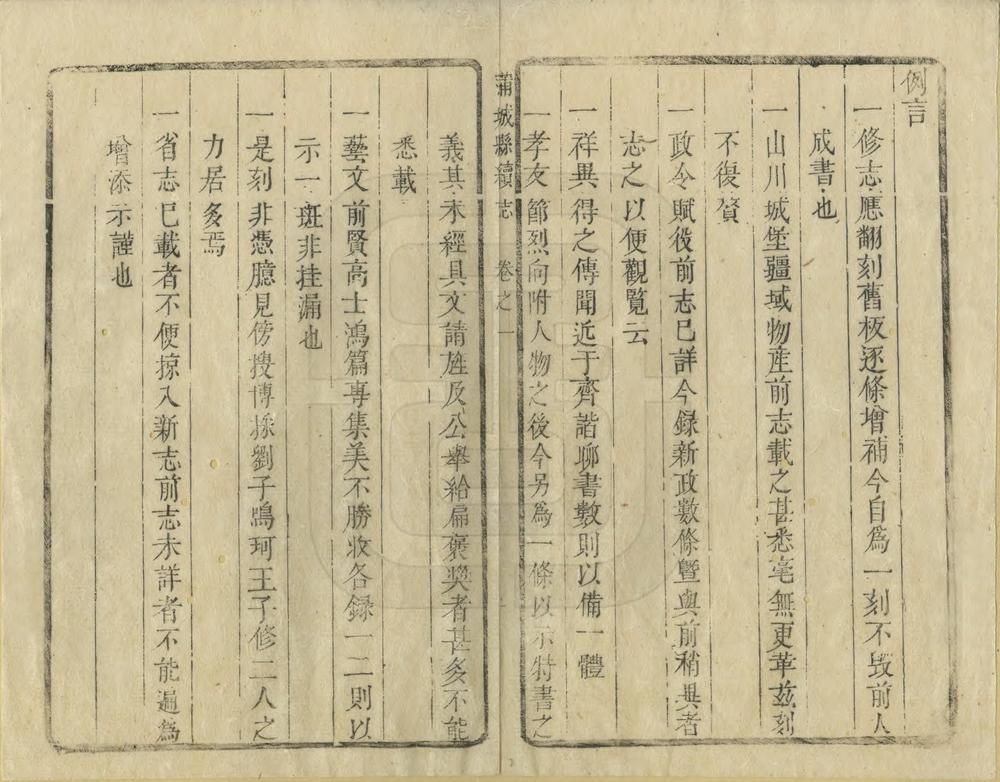 例言
一修志應翻刻舊板逐條增補今自爲一刻不毀前人
成書也
一山川城堡疆域物產前志載之甚悉毫無更革茲刻
不復贅
一政令賦役前志已詳今錄新政數條曁與前稍異者
志之以便觀覽云
一祥異得之傳聞近于齊諧聊書數則以備一體
一孝友節烈向附人物之後今另爲一條以示特書之
蒲城縣續志 卷之一
義其未經具文請旌及公舉給扁褒獎者甚多不能
悉載
一藝文前賢高士鴻篇專集美不勝收各錄一二則以
示一斑非挂漏也
一是刻非憑臆見傍搜博採劉子鳴珂王子修二人之
力居多焉
一省志已載者不便掠入新志前志未詳者不能遍爲
增添示謹也